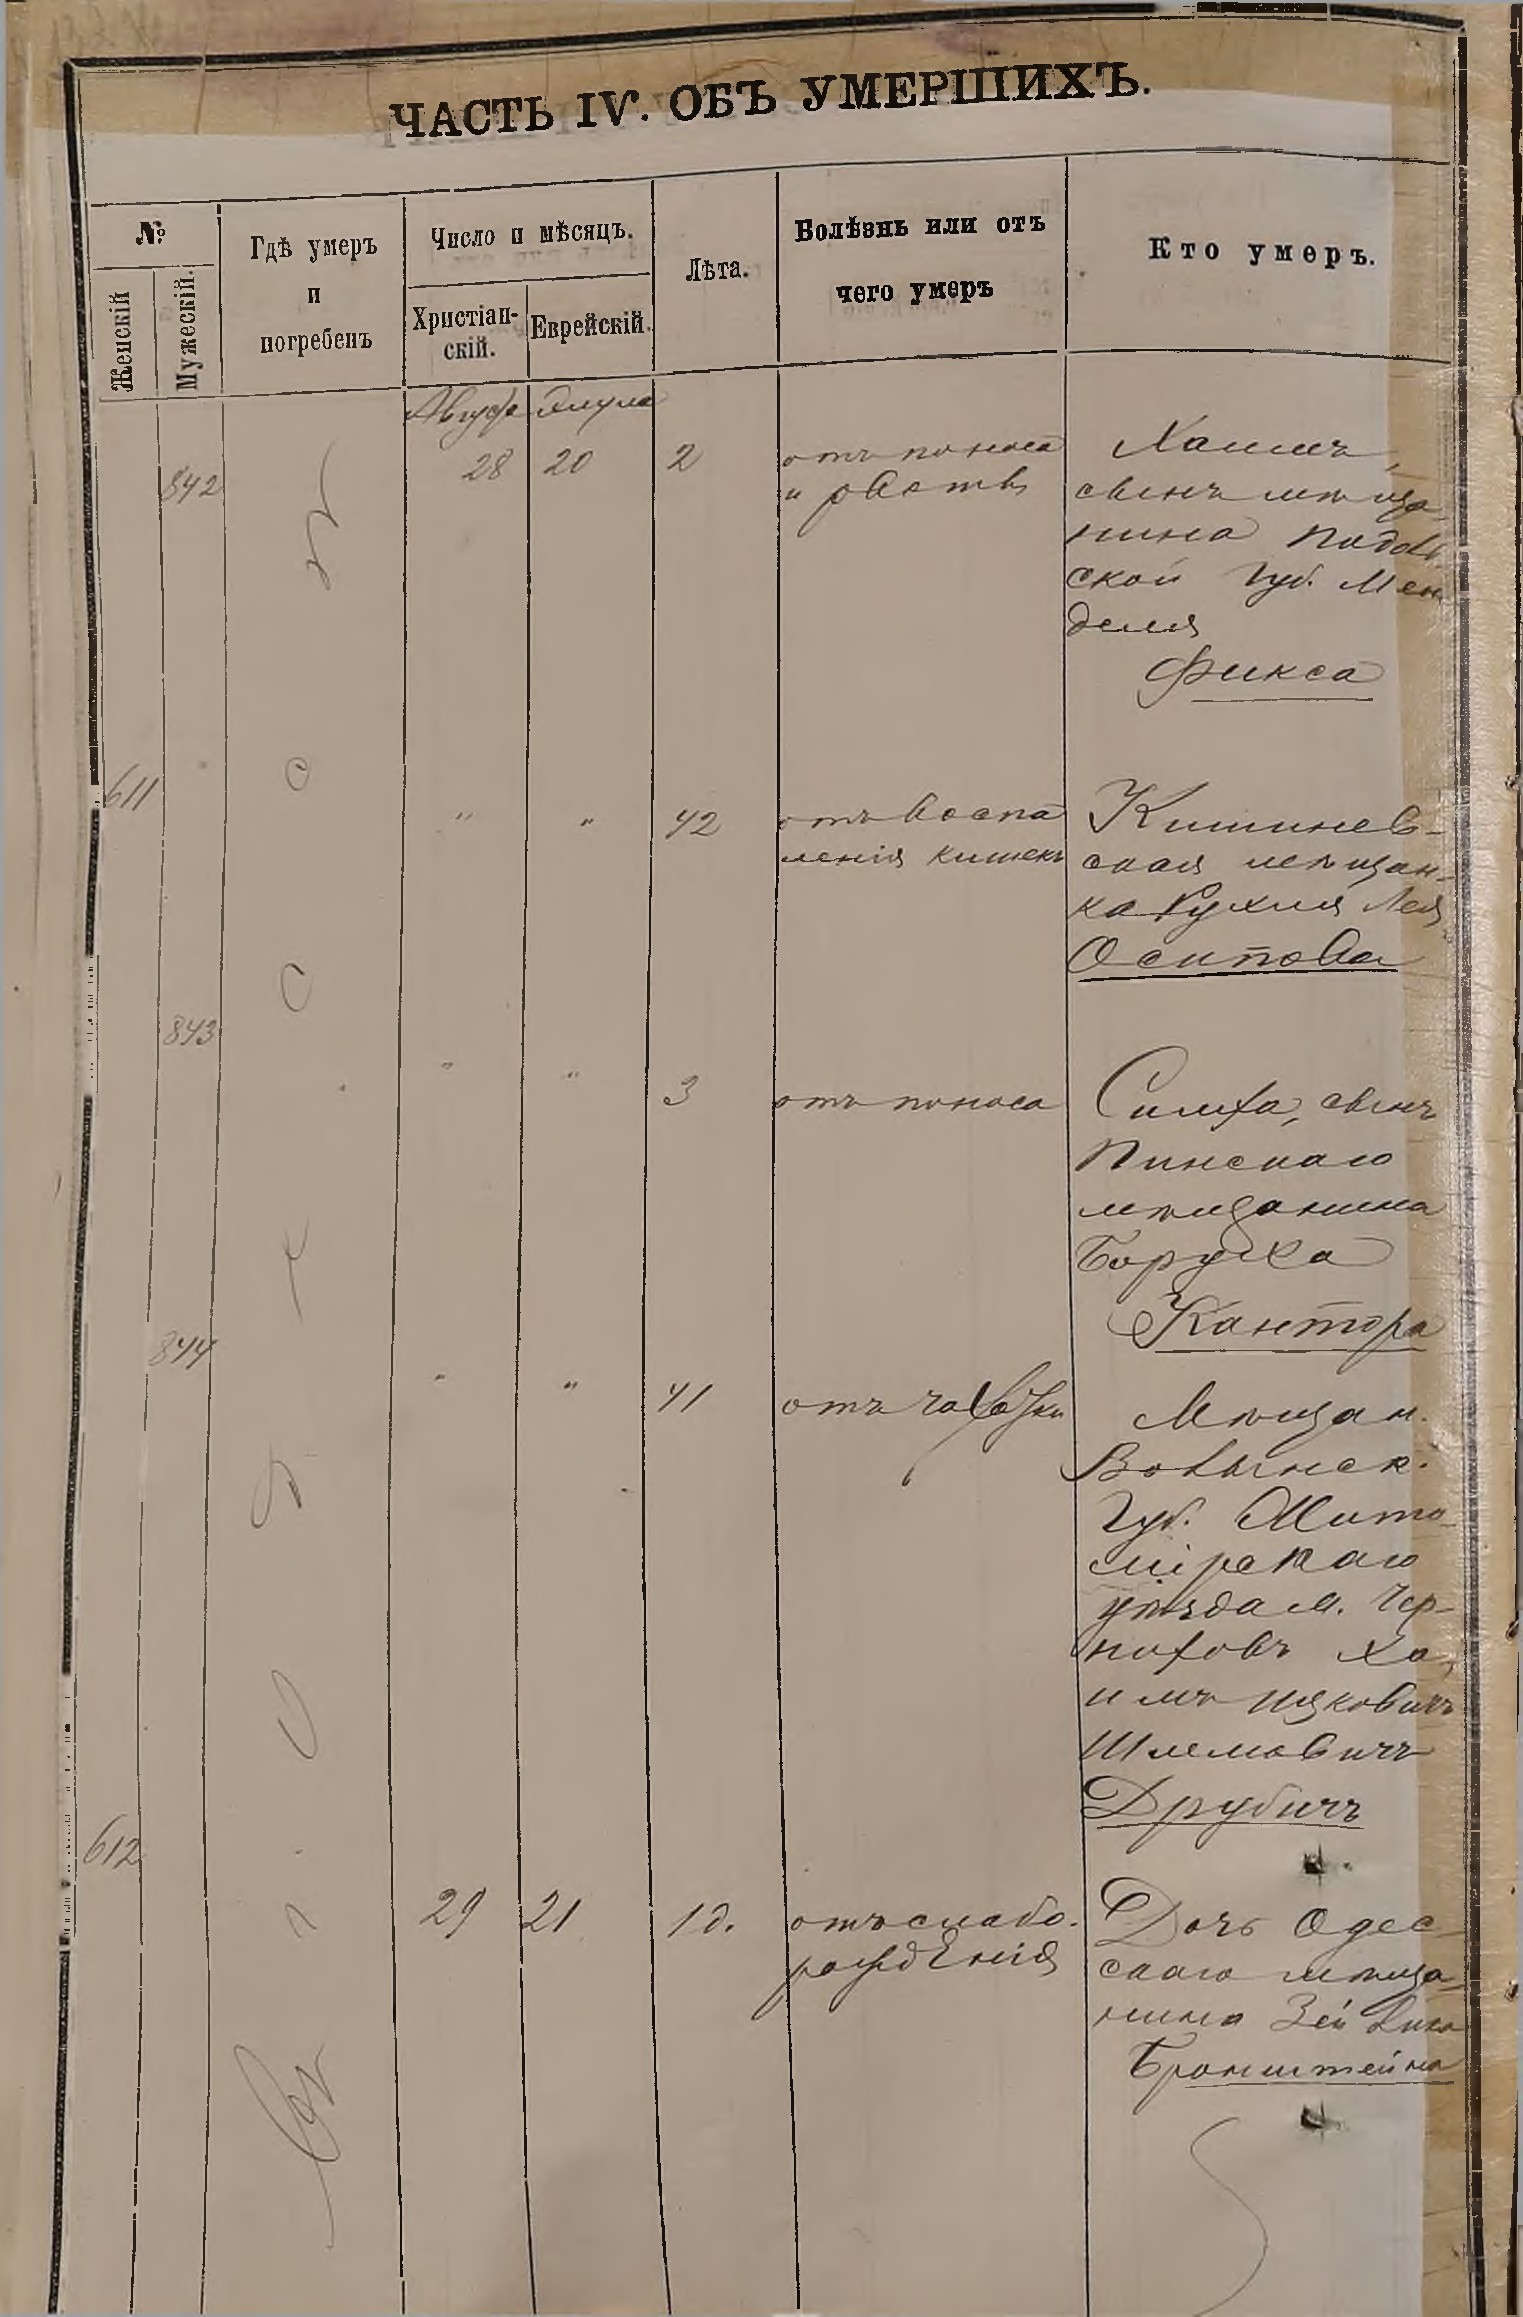 ЧАСТЬ IV. ОБЪ УМЕРШИХЪ.
№
Женскій
Мужескій.
Гдѣ умеръ
и
погребенъ
Число и мѣсяцъ.
Христіан-
скій.
Еврейскій.
Лѣта.
Болѣзнь или отъ
чего умеръ
Кто умеръ.
Августа Элула
842
28
20
2
отъ поноса
и рвоты
Хаимъ,
сынъ мѣща
нина Подоль
ской Губ. Мен
деля
Фикса
611
"
"
42
отъ воспа
ленія кишекъ
Кишинев-
ская мѣщан-
ка Рухля Лея
Осипова
843
"
"
3
отъ поноса
Симха, сынъ
Пинскаго
мѣщанина
Боруха
Кантора
844
"
"
41
отъ чахотки
Мѣщан.
Волынск.
Губ. Жито-
мірскаго
уѣзда м. Чер-
няховъ Ха-
имъ Ицковичъ
Шлемовичъ
Друбичъ
612
29
21
1 д.
отъ слабо-
рожденія
Дочь Одес
скаго мѣща-
нина Зейлика
Бронштейна
въ г. Одессѣ